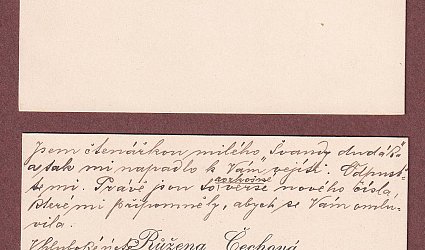 Jsem čtenářkou milého „Švandy dudáka“
a tak mi napadlo k Vám vejíti. Odpusť-
te mi. Právě jsou to verše nového čísla
které mi připomněly, abych se Vám omlu-
vila.
V hluboké úctě Růžena Čechová